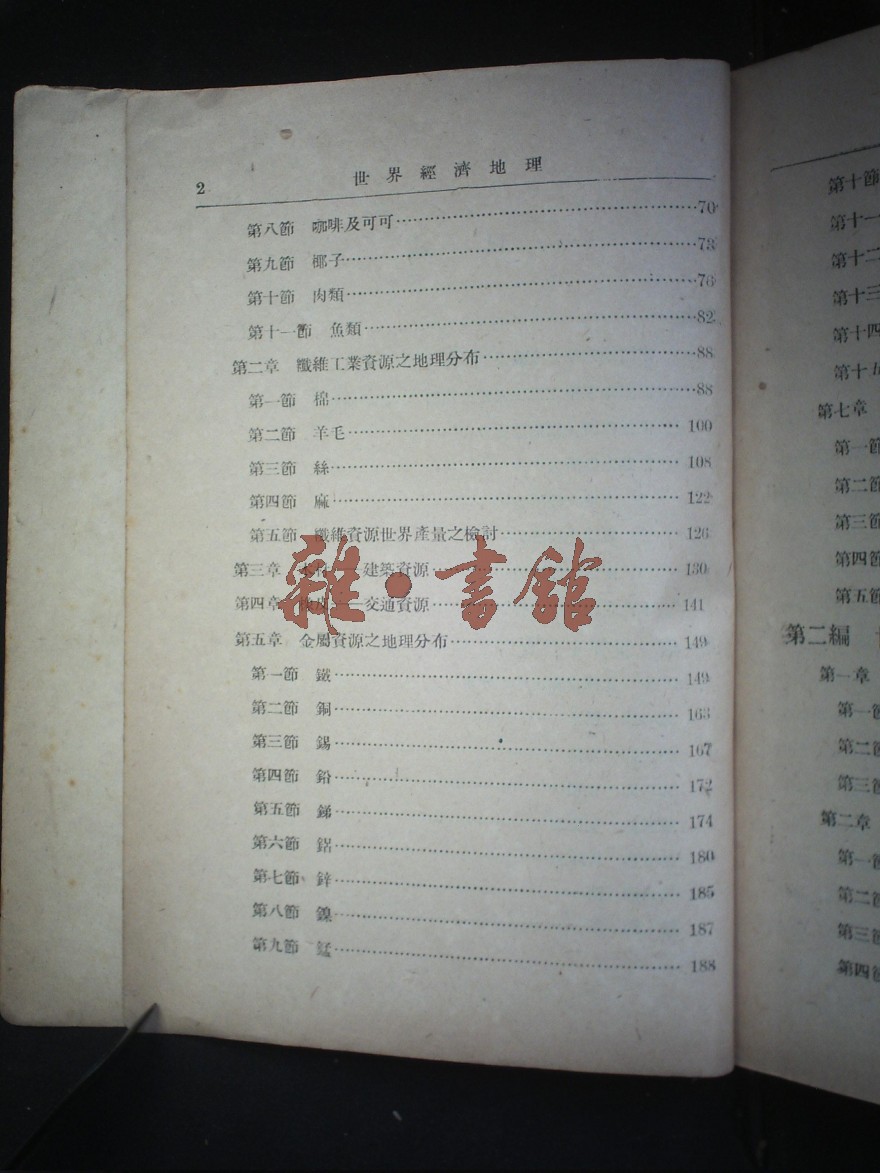 2 世界經濟地理
第八節 咖啡及可可 70
第九節 椰子 73
第十節 肉類 76
第十一節 魚類 82
第二章 纖維工業資源之地理分布 88
第一節 棉 88
第二節 羊毛 100
第三節 絲 108
第四節 麻 122
第五節 纖維資源世界產量之檢討 126
第三章 木材——建築資源 130
第四章 橡皮——交通資源 141
第五章 金屬資源之地理分布 149
第一節 鐵 149
第二節 銅 163
第三節 錫 167
第四節 鉛 172
第五節 銻 174
第六節 鋁 180
第七節 鋅 185
第八節 鎳 187
第九節 錳 188
雜·書館
第十節
第十一
第十二
第十三
第十四
第十五
第七章
第一節
第二節
第三節
第四節
第五節
第二編
第一章
第一節
第二節
第三節
第二章
第一節
第二節
第三節
第四節